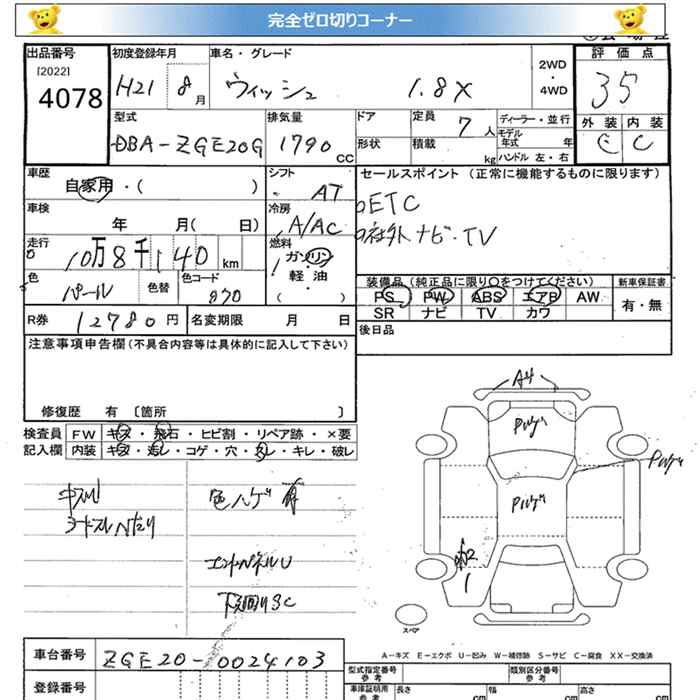 完全ゼロ切りコーナー
出品番号
[2022]
4078
初度登録年月
H21 8月
車名・グレード
ウィッシュ 1.8X
2WD
・
4WD
評価点
35
外装 内装
C C
型式
DBA-ZGE20G
排気量
1790 CC
ドア
形状
定員
7人
積載
kg
ディーラー・並行
モデル
年式 年
ハンドル 左・右
車歴
自家用・( )
シフト
AT
セールスポイント (正常に機能するものに限ります)
ETC
社外ナビ・TV
車検
年 月( 日)
冷房
A/AC
走行
10万8千140 km
燃料
ガソリン
・
軽・油
( )
色
パール
色替
色コード
070
装備品(純正品に限り○をつけてください)
PS PW ABS エアB AW
SR ナビ TV カワ
新車保証書
有・無
R券 12780円
名変期限 月 日
後日品
注意事項申告欄(不具合内容等は具体的に記入して下さい)
修復歴 有 〔箇所 〕
検査員
記入欄
FW キズ・飛石・ヒビ割・リペア跡・×要
内装 キズ・汚レ・コゲ・穴・スレ・キレ・破レ
色ハゲ
エンドパネルU
下回りSC
A4
スペア
A-キズ E-エクボ U-凹み W-補修跡 S-サビ C-腐食 XX-交換済
車台番号 ZGE20-0024103
登録番号
型式指定番号
参考
類別区分番号
参考
車庫証明用
参考
長さ cm
幅 cm
高さ cm